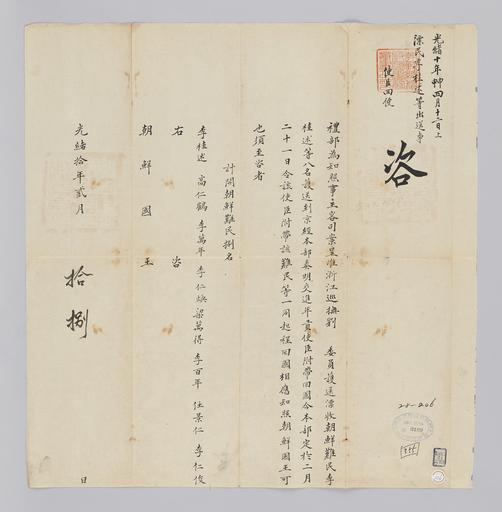 光緖十年 四月十二日上
漂民李桂述等出送事
使臣回便
咨
禮部爲知照事主客司案呈准浙江巡撫劉 委員護送漂收朝鮮難民李
桂述等八名護送到京經本部奏明交進年貢使臣附帶回國今本部定於二月
二十一日令該使臣附帶該難民等一同起程回國相應知照朝鮮國王可
也須至咨者
計開朝鮮難民捌名
李桂述 高仁鶴 李萬年 李仁煥 梁萬得 李百年 任景仁 李仁俊
右 咨
朝鮮國王
光緖拾年貳月 拾捌 日
28-206